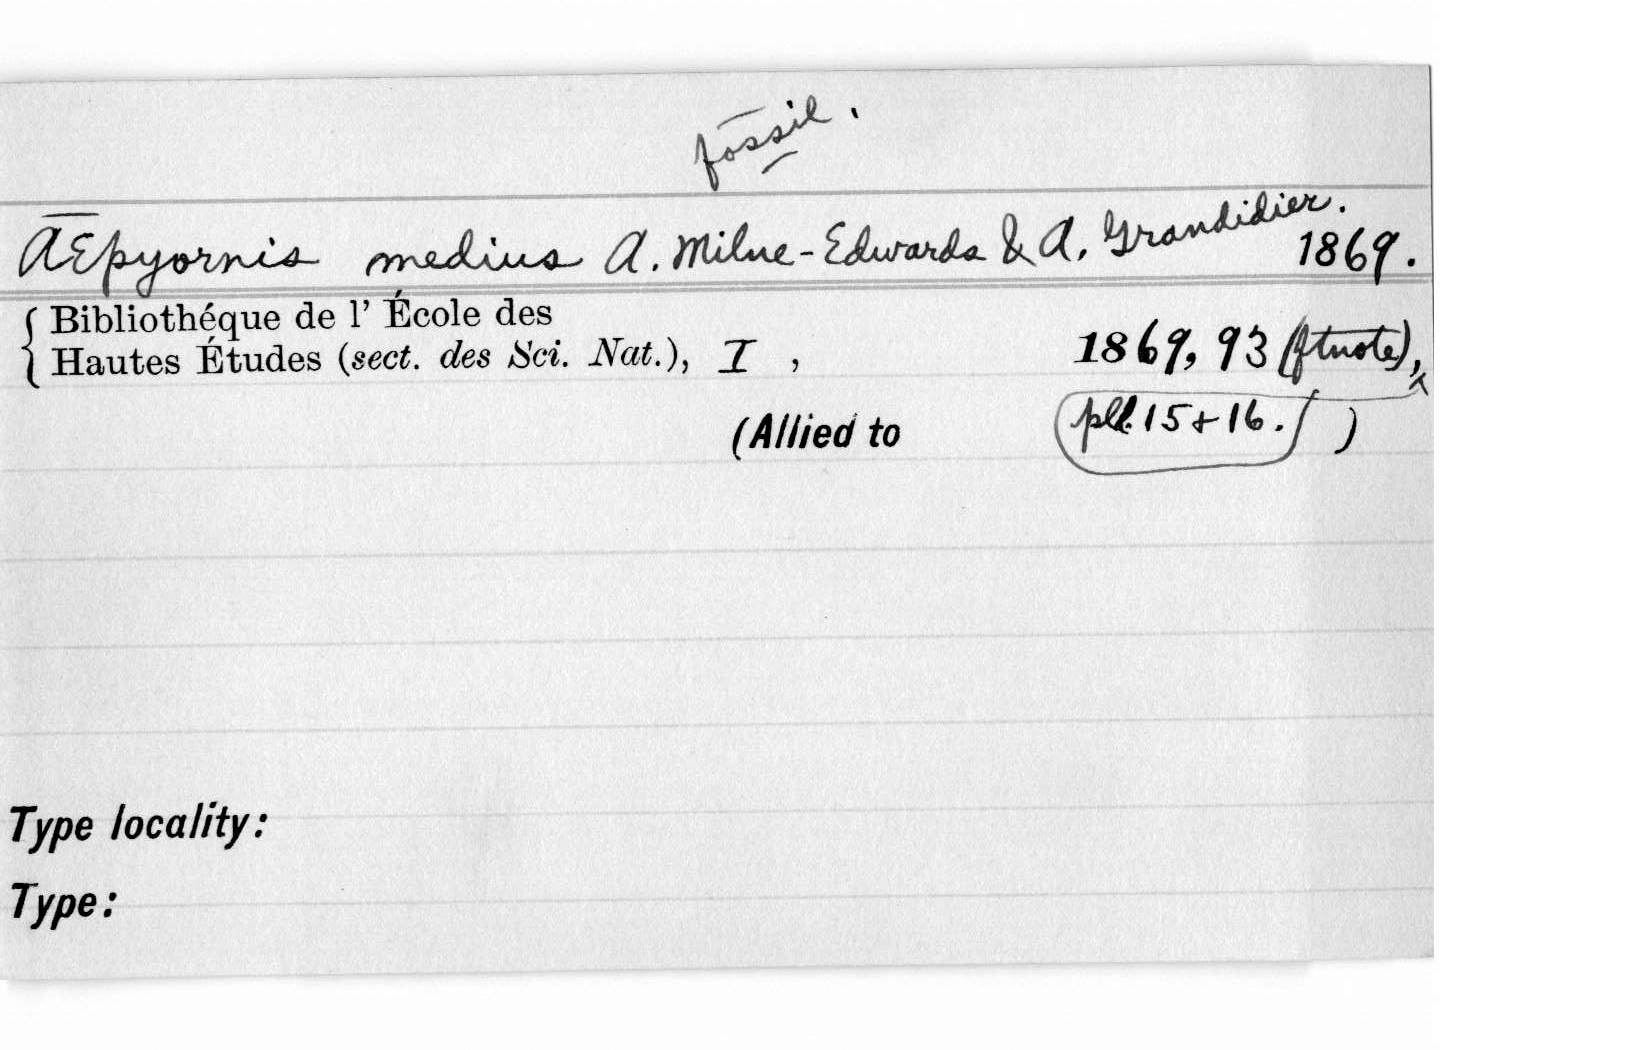 fossil.
AEpyornis medius A. Milne-Edwards & A. Grandidier. 1869.
Bibliothéque de l' École des
Hautes Études (sect. des Sci. Nat.), I, 1869, 93 (ftnote),
(Allied to pll. 15 + 16. )
Type locality:
Type: